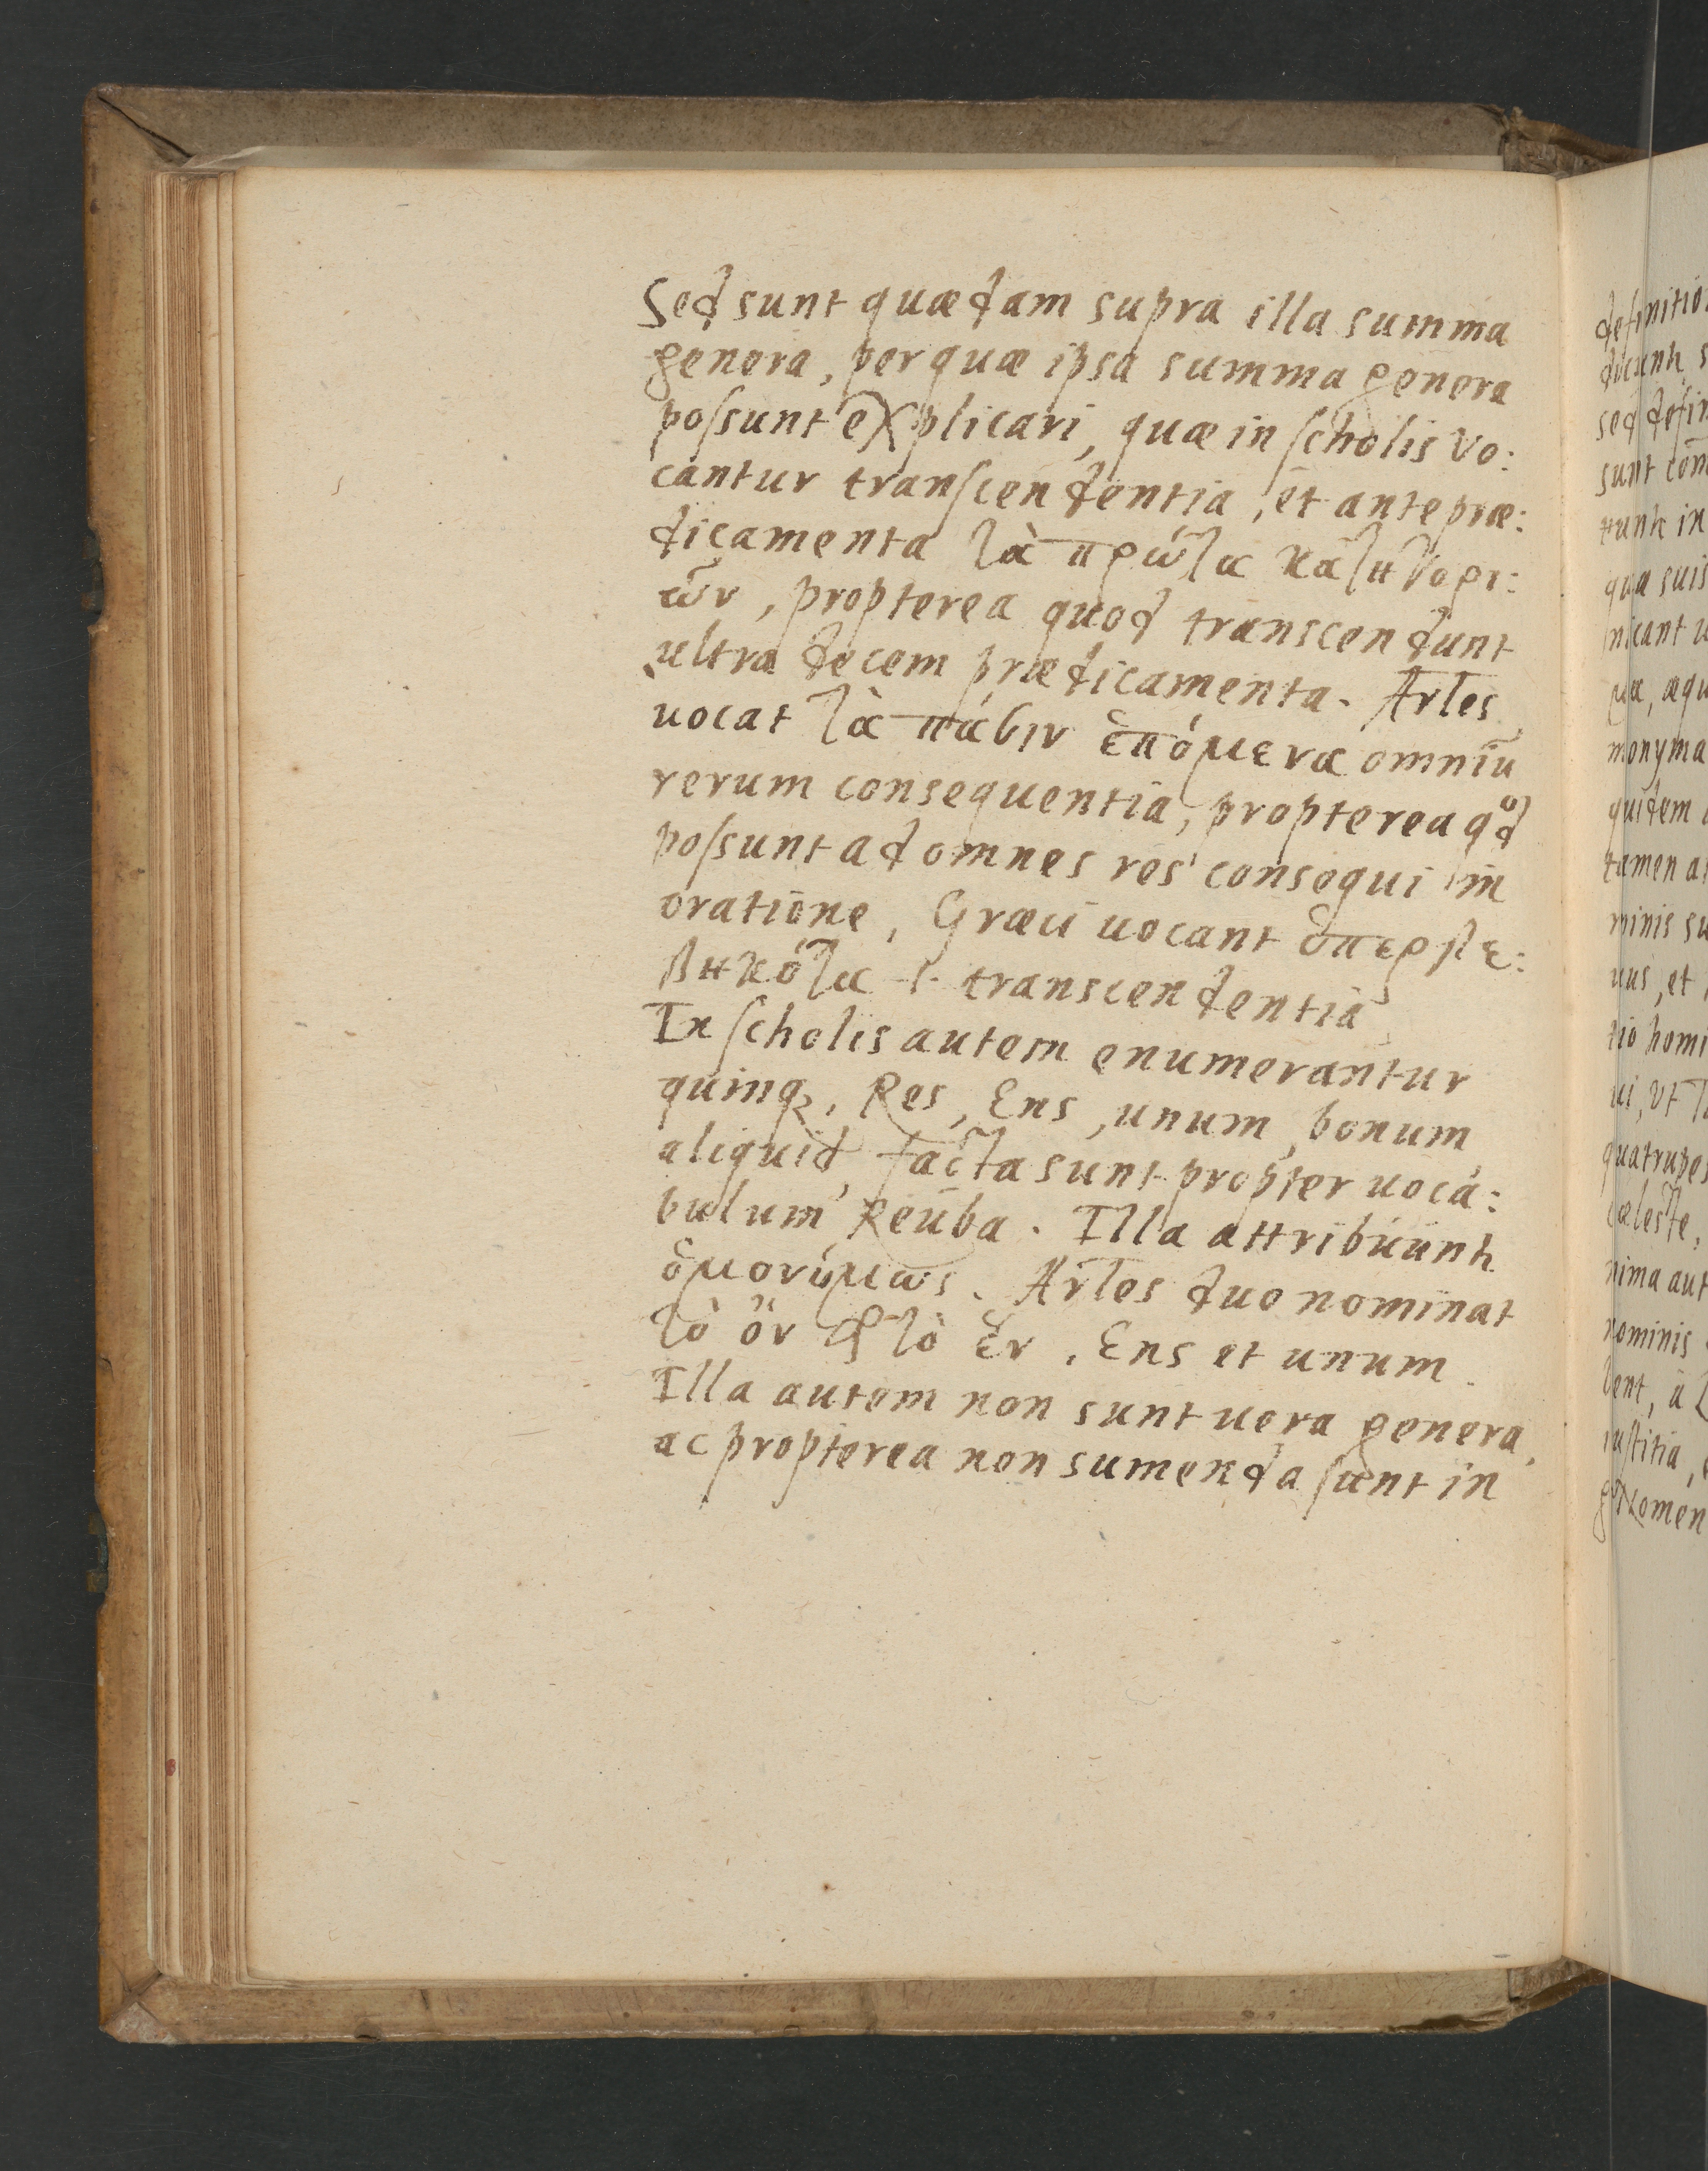 Sed sunt quædam supra illa summa
genera, per quæ ipsa summa genera
possunt explicari, quæ in scholis vo:
cantur transcendentia, et antepræ:
dicamenta τὰ πρῶτα κατηγορι:
ῶν, propterea quod transcendunt
ultra decem prædicamenta. Arles
uocat τὰ πάσιν ἑπόμενα omniū
rerum consequentia, propterea qᵒd
possunt ad omnes res consequi in
oratione, Græci uocant ὑπερβε:
βηκότα .i. transcendentia
In scholis autem enumerantur
quinq₃, Res, Ens, unum, bonum,
aliquid, facta sunt propter uoca:
bulum Reuba. Illa attribuunt
ὁμονύμως. Arles duo nominat
τὸ ὄν ϗ τὸ ἕν, Ens et unum.
Illa autem non sunt uera genera,
ac propterea non sumenda sunt in
sed
sunt
qua suis
nicant
monyma
quidem
tamen
minis
et
ut
quatrupes
cœleste,
nima aut
nominis
iustitia,
Nomen